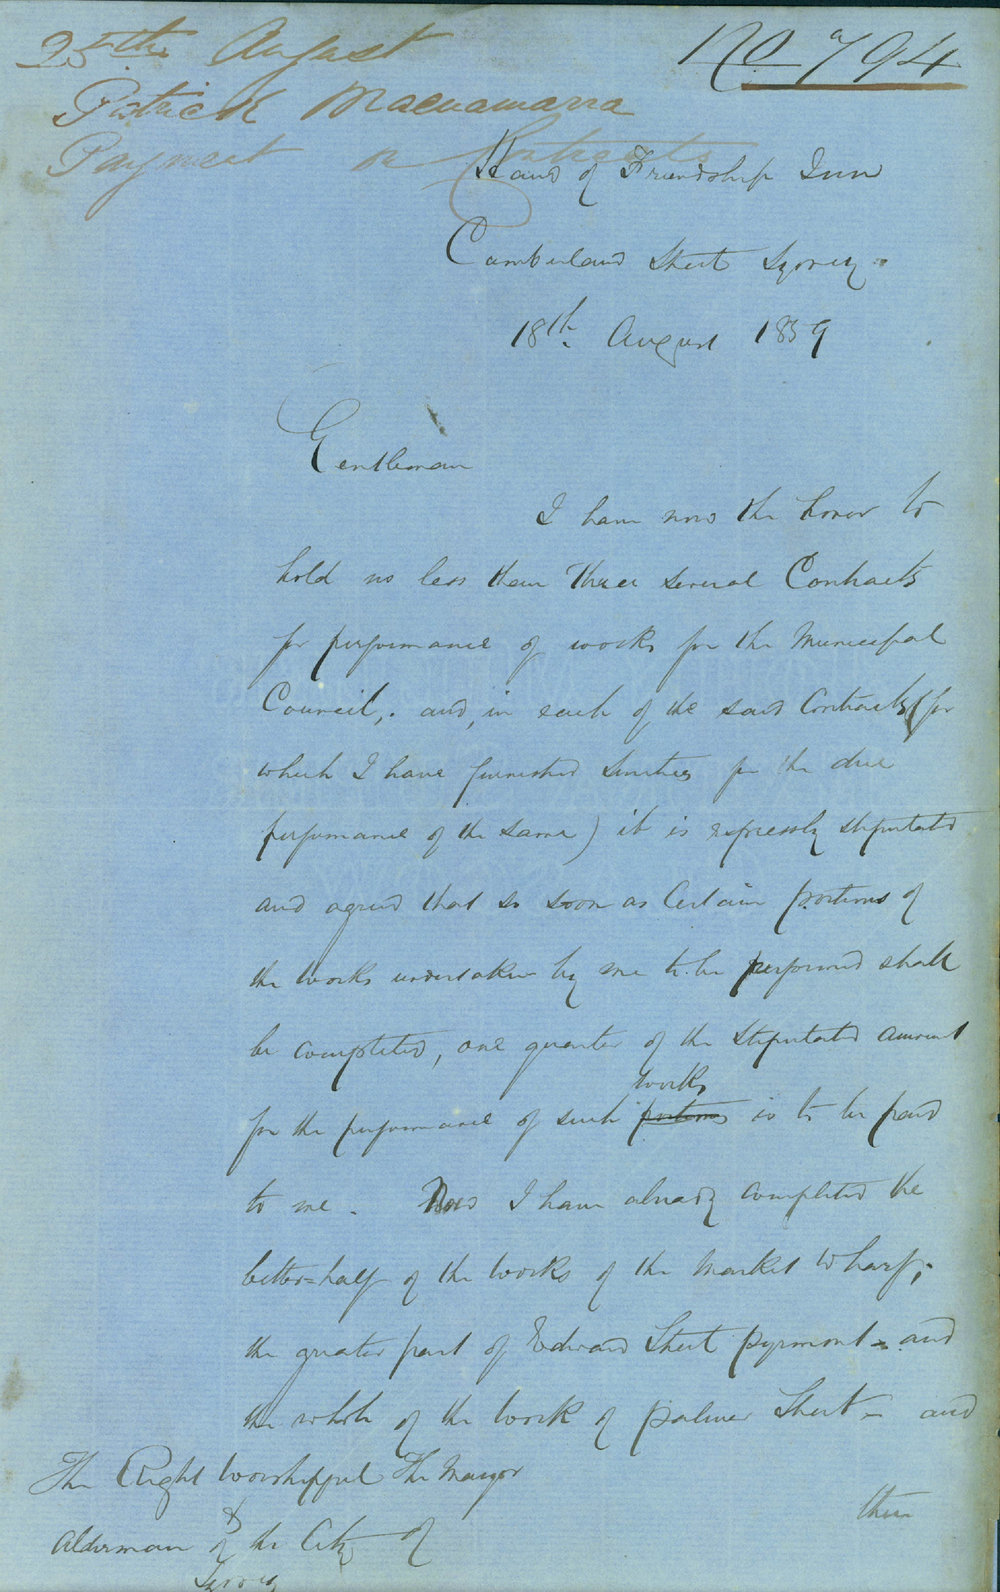 25th August
No. 794
Patrick Macnamarra
Payment on Contracts
Hand of Friendship Inn
Cumberland Street Sydney.
18th. August 1859
Gentleman
I have now the honor to
hold no less than three several Contracts
for performance of works for the Municipal
Council, and, in each of the said Contracts (for
which I have furnished Sureties for the due
performance of the same) it is expressly stipulated
and agreed that so soon as Certain portions of
the works undertaken by me to be performed shall
be completed, one quarter of the Stipulated amount
works
for the performance of such portions is to be paid
to me. Now I have already completed the
better=half of the works of the Market Wharf;
the greater part of Edward Street pyrmont - and
the whole of the work of palmer Street - and
then
The Right Worshipful The Mayor
&
Alderman of the City of
Sydney